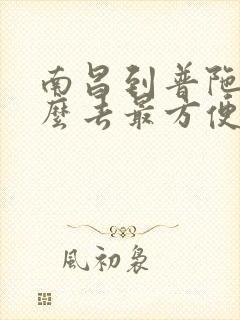 南昌到普陀
麼去最方便
風初裊